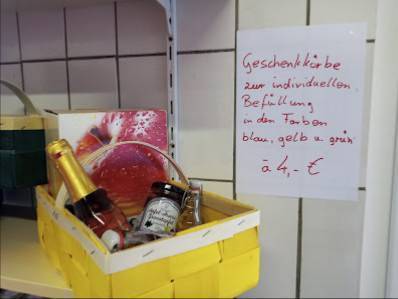 Geschenkkörbe
zur individuellen
Befüllung
in den Farben
blau, gelb u grün
à 4,- €